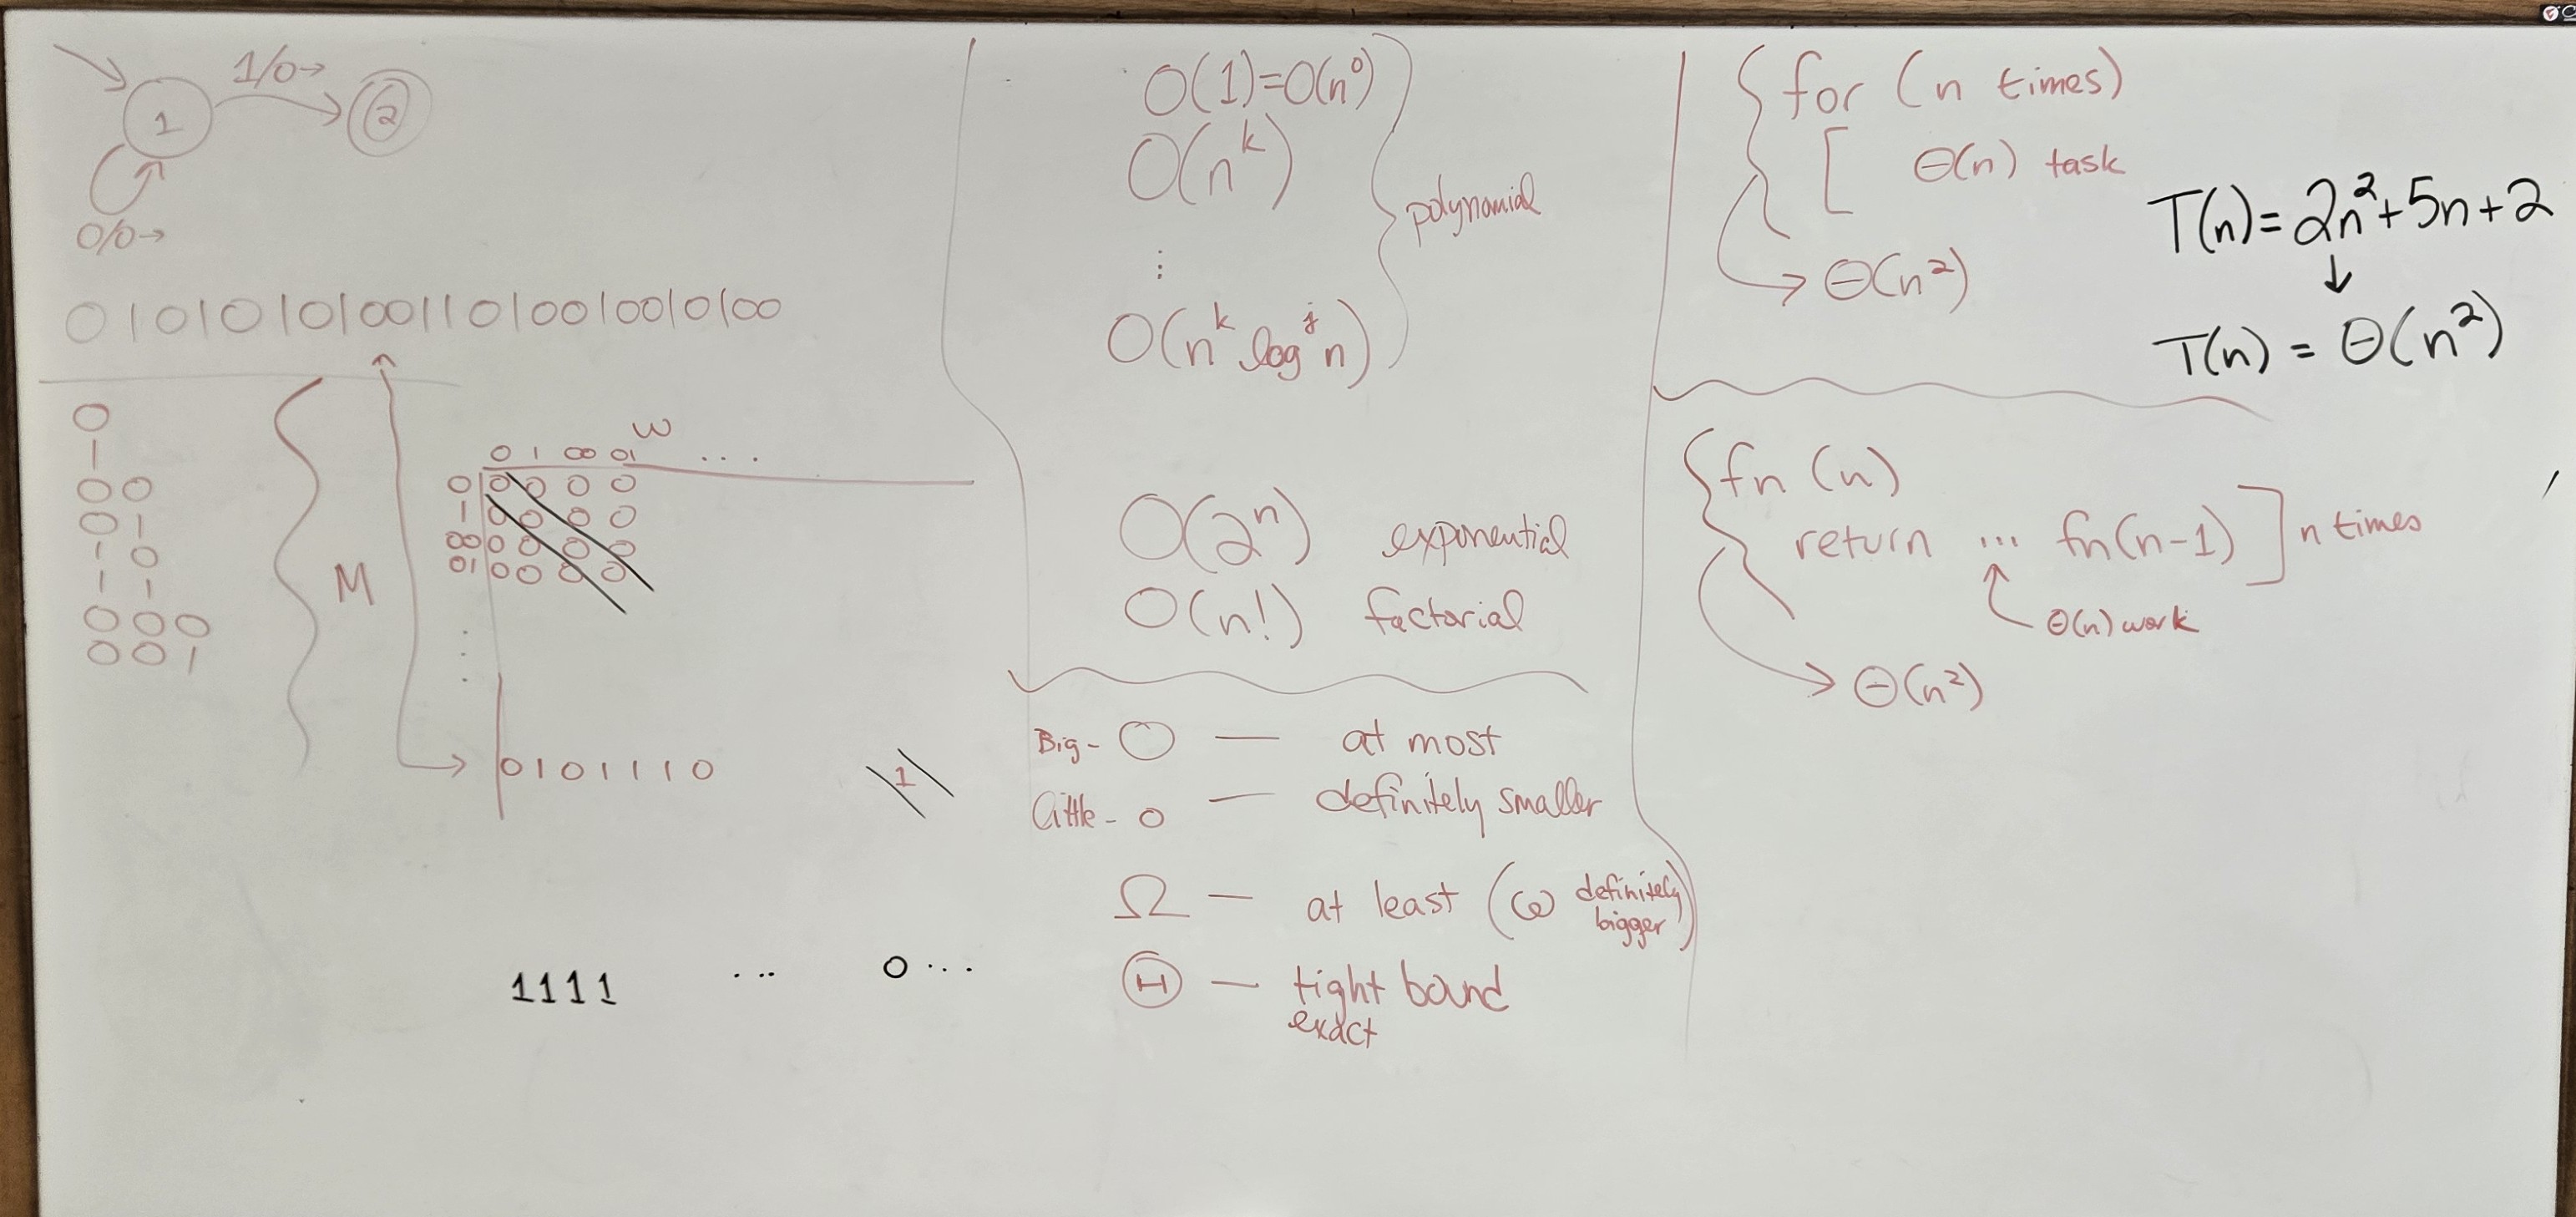 1/0→
1
2
0/0→
010101010011010010010100
0
1
00
01
10
11
000
001
M
w
0 1 00 01 ...
0 0 0 0 0
1 0 0 0 0
00 0 0 0 0
01 0 0 0 0
0101110
1
1111 ... 0...
O(1)=O(n⁰)
O(nᵏ)
⋮
O(nᵏ logʲ n)
polynomial
O(2ⁿ) exponential
O(n!) factorial
Big-O — at most
little-o — definitely smaller
Ω — at least (ω definitely bigger)
Θ — tight bound
exact
for (n times)
Θ(n) task
Θ(n²)
T(n)=2n²+5n+2
↓
T(n) = Θ(n²)
fn (n)
return ... fn(n-1) n times
Θ(n) work
Θ(n²)